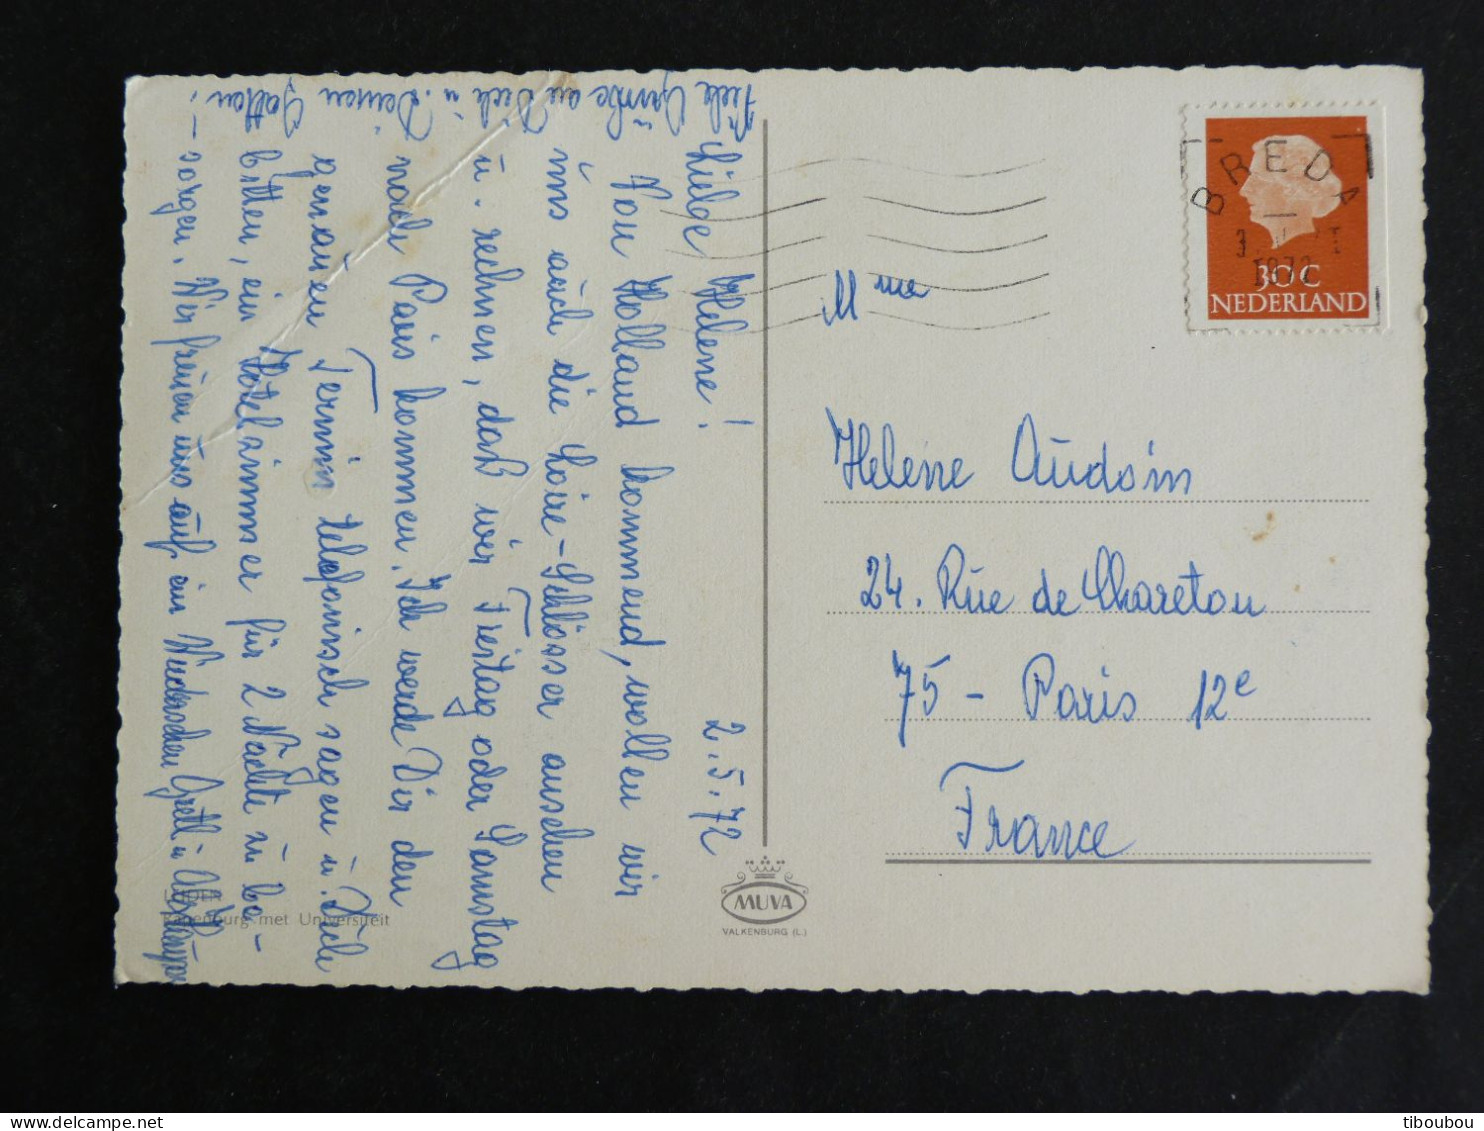 2.5.72
Lielge Helene!
Von Holland kommend, wollen wir
uns auch die Loire-Schlösser ansehen
u. rechnen, daß wir Freitag oder Samstag
nach Paris kommen. Ich werde Dir den
genauen Termin telefonisch sagen u. Dich
bitten, ein Hotelzimmer für 2 Nächte zu be-
-sorgen. Wir freuen uns auf ein Wiedersehen Gretl u.
Viele Grüße an Dich u. Deinen Gatten!
LEIDEN
Rapenburg met Universiteit
MUVA
VALKENBURG (L.)
BREDA
1972
30 C
NEDERLAND
Mme
Helene Audoin
24. Rue de Chareton
75 - Paris 12e
France
tiboubou